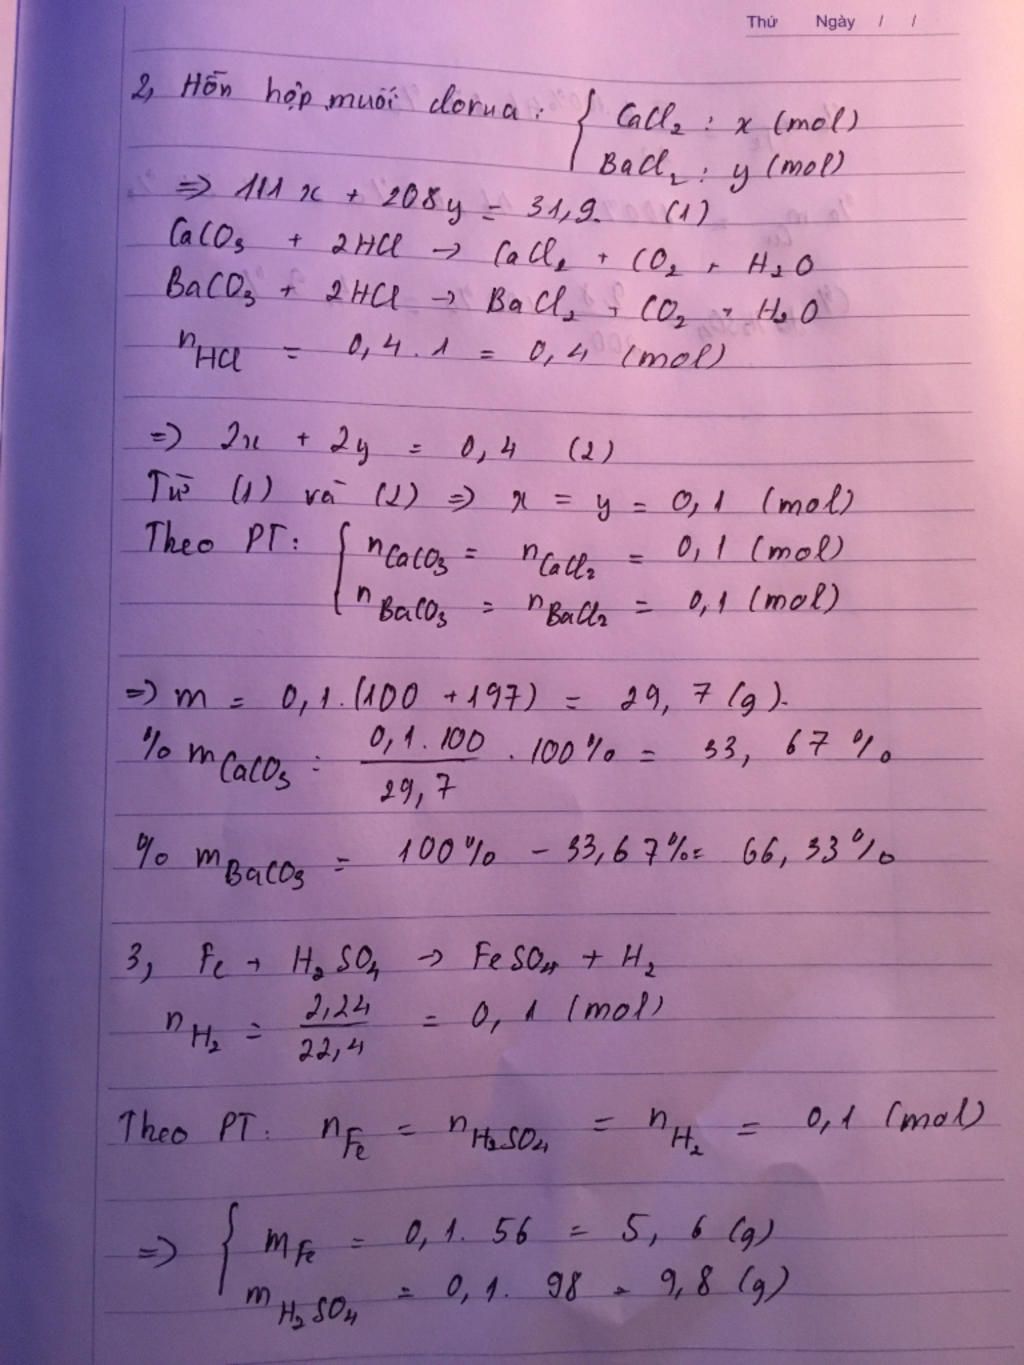 Thứ Ngày / /
2, Hỗn hợp muối clorua : { CaCl₂ : x (mol)
BaCl₂ : y (mol)
=> 111x + 208y = 31,9. (1)
CaCO₃ + 2HCl → CaCl₂ + CO₂ + H₂O
BaCO₃ + 2HCl → BaCl₂ + CO₂ + H₂O
n_HCl = 0,4 . 1 = 0,4 (mol)
=> 2x + 2y = 0,4 (2)
Từ (1) và (2) => x = y = 0,1 (mol)
Theo PT: { n_CaCO₃ = n_CaCl₂ = 0,1 (mol)
n_BaCO₃ = n_BaCl₂ = 0,1 (mol)
=> m = 0,1.(100 + 197) = 29,7 (g).
% m_CaCO₃ = 0,1.100/29,7 . 100% = 33,67%
% m_BaCO₃ = 100% - 33,67% = 66,33%
3, Fe + H₂SO₄ → FeSO₄ + H₂
n_H₂ = 2,24/22,4 = 0,1 (mol)
Theo PT: n_Fe = n_H₂SO₄ = n_H₂ = 0,1 (mol)
=> { m_Fe = 0,1. 56 = 5,6 (g)
m_H₂SO₄ = 0,1. 98 = 9,8 (g)